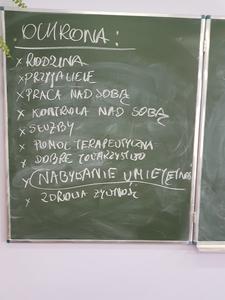 OCHRONA:
x RODZINA
x PRZYJACIELE
x PRACA NAD SOBĄ
x KONTROLA NAD SOBĄ
x SŁUŻBY
x POMOC TERAPEUTYCZNA
x DOBRE TOWARZYSTWO
x NABYWANIE UMIEJĘTNOŚCI
x ZDROWA ŻYWNOŚĆ